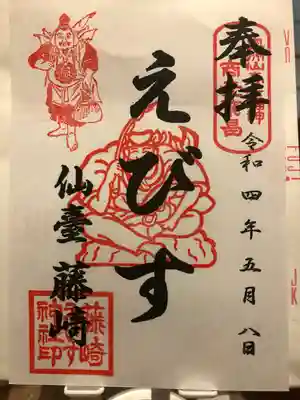 奉拝
令和四年五月八日
えびす
仙臺 藤崎
藤崎
えびす
神社印